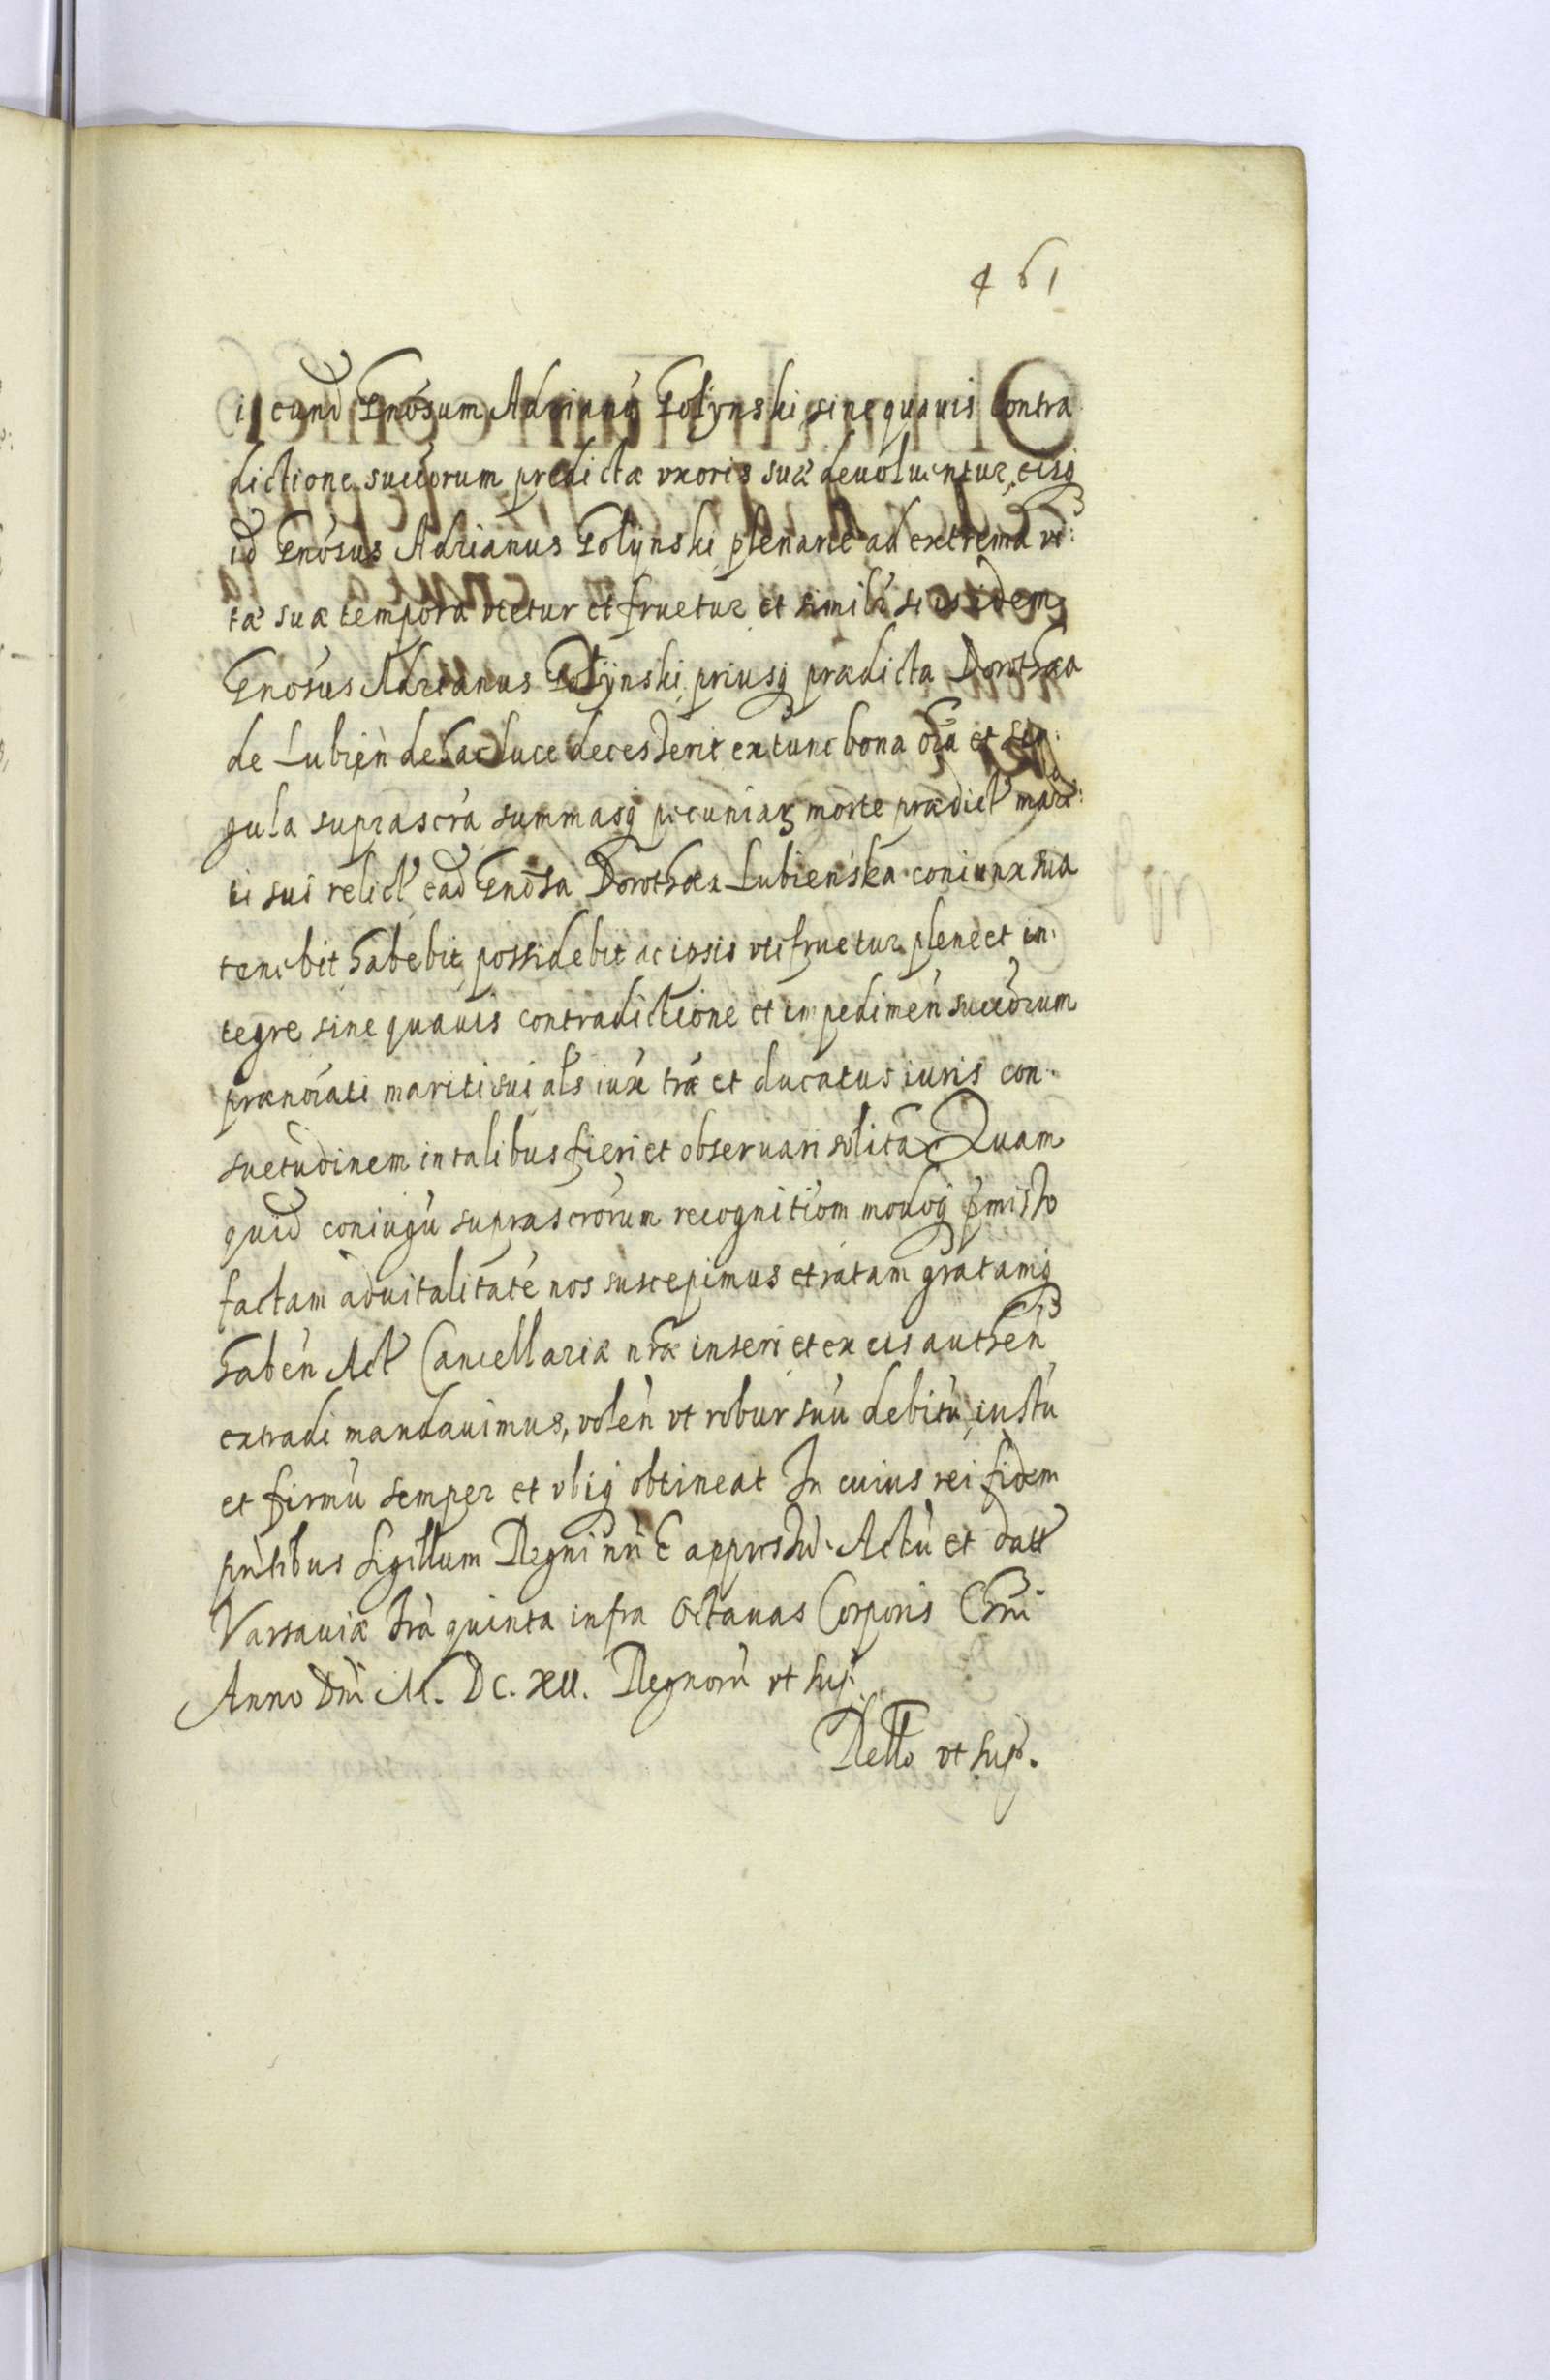 461
in eund Gnosum Adrianū Golynski sine quavis Contra
dictione succorum predictæ uxoris suæ devolventur, eisq
id Gnosus Adrianus Golynski plenarie ad extrema vi:
tæ suæ tempora utetur et fruetur et similr si is idem
Gnosus Adrianus Golynski, priusq prædicta Dorothæa
de Lubień de hac luce decesserit extunc bona oīa et sin:
gula suprascra summasq pecuniar morte prædict mari:
ti sui relict ead Gnosa Dorothæa Lubieńska coniunx sua
tenebit habebit, possidebit ac ipsis uti fruetur plene et in:
tegre sine quavis contradictione et impedimen succorum
prænoiati mariti sui als iux træ et ducatus iuris con:
suetudinem in talibus fieri et observari solitā Quam
quid coniugū suprascrorum recognitiom modoq pmisso
factam advitalitatē nos suscepimus et ratam gratamq
haben Act Cancellariæ nræ inseri et ex eis authen
extradi mandavimus, volen ut robur suū debitū, iustū
et firmū semper et ubiq obtineat In cuius rei fidem
pntibus Sigillum Regni nri E appressū. Actū et datt
Varsaviæ fra quinta infra Octavas Corporis Chri
Anno Dni M. DC. XII. Regnorū ut sup.
Rello ut sup.